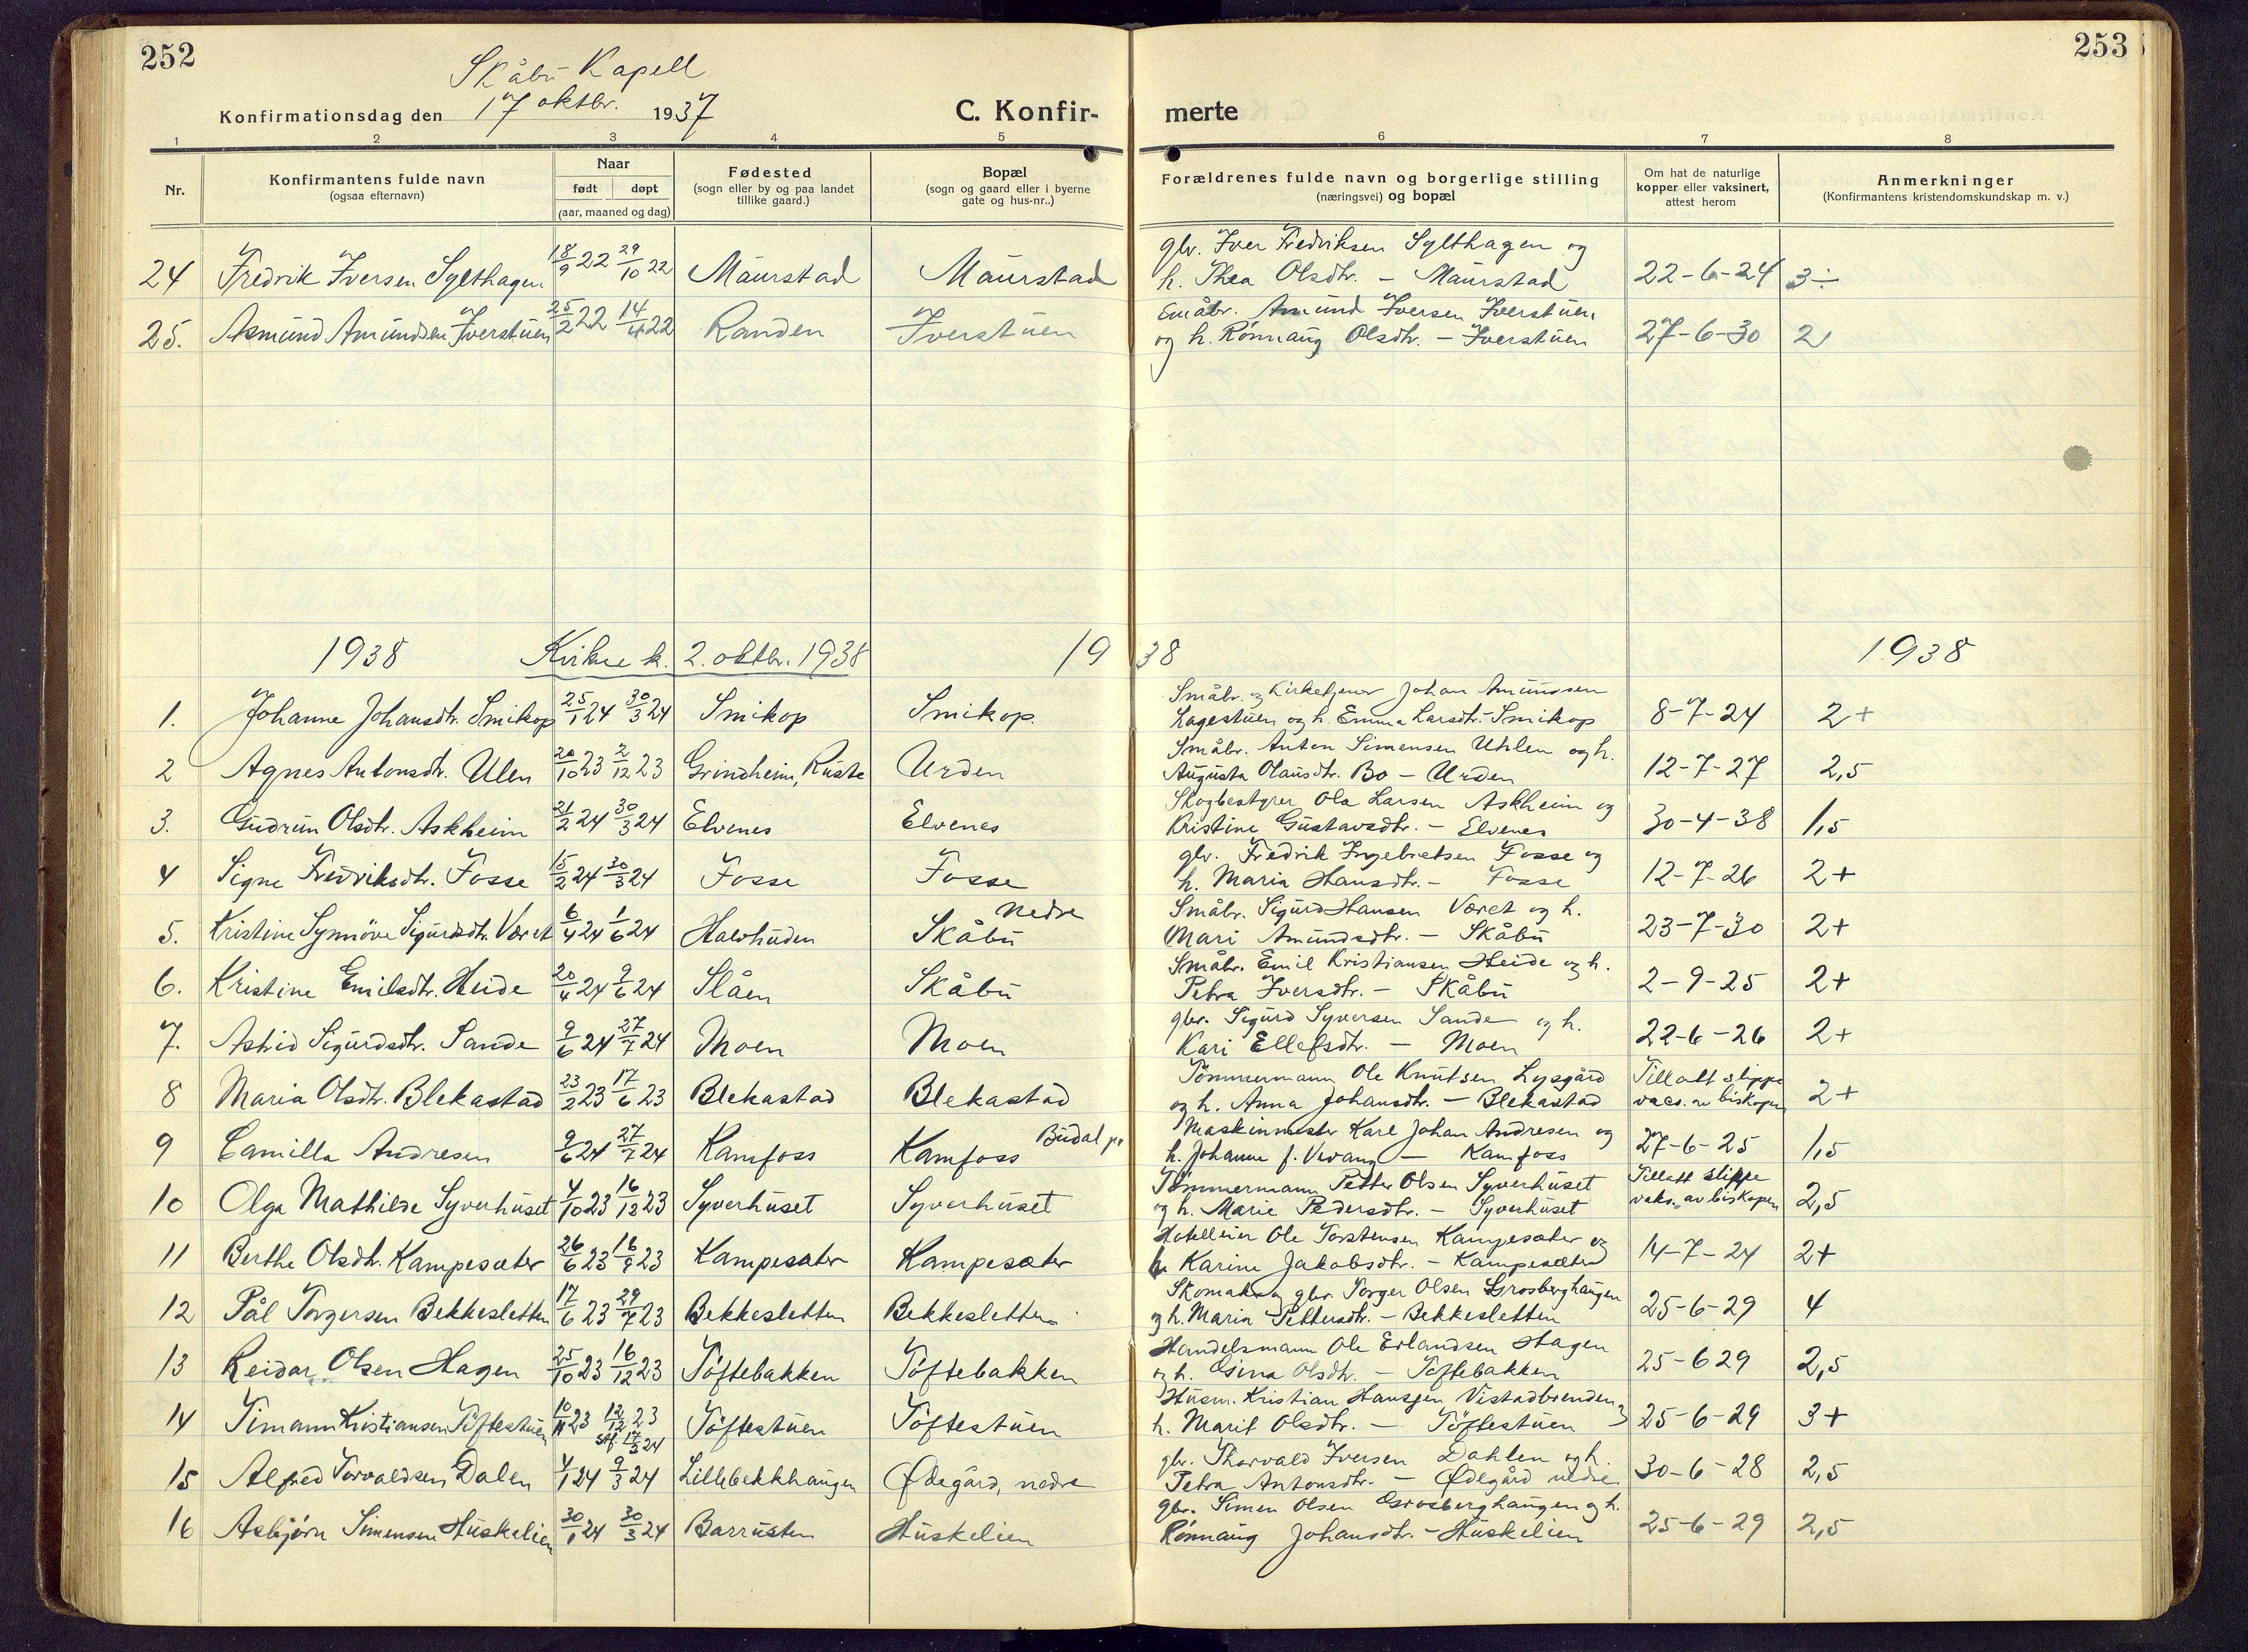 252
253
Skåbu Kapell
Konfirmationsdag den 17 oktbr. 1937
C. Konfir-
merte
1 2 3 4 5 6 7 8
Nr.
Konfirmantens fulde navn
(ogsaa efternavn)
Naar
født døpt
(aar, maaned og dag)
Fødested
(sogn eller by og paa landet
tillike gaard.)
Bopæl
(sogn og gaard eller i byerne
gate og hus-nr..)
Forældrenes fulde navn og borgerlige stilling
(næringsvei) og bopæl
Om hat de naturlige
kopper eller vaksinert,
attest herom
Anmerkninger
(Konfirmantens kristendomskundskap m. v.)
24 Fredrik Iversen Sylthagen 18/9 22 29/10 22 Maurstad Maurstad
gbr. Iver Fredriksen Sylthagen og
h. Thea Olsdtr. - Maurstad 22-6-24 3÷
25. Asmund Amundsen Iverstuen 25/2 22 14/4 22 Randen Iverstuen
Småbr. Amund Iversen Iverstuen
og h. Rønnaug Olsdtr. - Iverstuen 27-6-30 2
1938 Kvikne k. 2. oktbr. 1938 1938 1938
1. Johanne Johansdtr. Smikop 25/1 24 30/3 24 Smikop Smikop.
Småbr. og Kirketjener Johan Amundsen
Lagestuen og h. Emma Larsdtr. - Smikop 8-7-24 2+
2 Agnes Antonsdtr. Ulen 20/10 23 2/12 23 Grindheim, Ruste Urden
Småbr. Anton Simensen Uhlen og h.
Augusta Olausdtr. Bo - Urden 12-7-27 2,5
3. Gudrun Olsdtr. Askheim 21/2 24 30/3 24 Elvenes Elvenes
Skogbestyrer Ola Larsen Askheim og
Kristine Gustavsdtr. - Elvenes 30-4-38 1,5
4 Signe Fredriksdtr. Fosse 15/2 24 30/3 24 Fosse Fosse
gbr. Fredrik Ingebretsen Fosse og
h. Maria Hansdtr. - Fosse 12-7-26 2+
5. Kristine Synnöve Sigurdsdtr. Været 6/4 24 1/6 24 Halvhuden Skåbu nedre
Småbr. Sigurd Hansen Været og h.
Mari Amundsdtr. - Skåbu 23-7-30 2+
6. Kristine Emilsdtr. Heide 20/4 24 9/6 24 Slåen Skåbu
Småbr. Emil Kristiansen Heide og h.
Petra Iversdtr. - Skåbu 2-9-25 2+
7. Astrid Sigurdsdtr. Sande 9/6 24 27/7 24 Moen Moen
gbr. Sigurd Syversen Sande og h.
Kari Ellefsdtr. - Moen 22-6-26 2+
8 Maria Olsdtr. Blekastad 23/2 23 17/6 23 Blekastad Blekastad
Tömmermann Ole Knutsen Lysgård
og h. Anna Johansdtr. - Blekastad
Tillatt slippe
vacs. av biskopen 2+
9 Camilla Andresen 9/6 24 27/7 24 Kamfoss Kamfoss
Maskinmester Karl Johan Andresen og
h. Johanne f. - Kamfoss 27-6-25 1,5
10 Olga Mathilde Syverhuset 4/10 23 16/12 23 Syverhuset Syverhuset
Tömmermann Petter Olsen Syverhuset
og h. Marie Pedersdtr. - Syverhuset
Tillatt slippe
vaks. av biskopen 2,5
11 Berthe Olsdtr. Kampesæter 26/6 23 16/9 23 Kampesæter Kampesæter
Hotelleier Ole Torstensen Kampesæter og
h. Karine Jakobsdtr. - Kampesæter 14-7-24 2+
12 Pål Torgersen Bekkesletten 17/6 23 29/7 23 Bekkesletten Bekkesletten
Skomaker og gbr Torger Olsen Grosberghaugen
og h. Maria Pettersdtr. - Bekkesletten 25-6-29 4
13 Reidar Olsen Hagen 25/10 23 16/12 23 Töftebakken Töftebakken
Handelsmann Ole Erlandsen Hagen
og h. Gina Olsdtr. - Töftebakken 25-6 29 2,5
14 Timann Kristiansen Töftestuen 10/11 23 12/12 23 Töftestuen Töftestuen
stf. 17/3 24
Husm. Kristian Hansen Vistadbrenden og
h. Marit Olsdtr. - Töftestuen 25-6-29 3+
15 Alfred Torvaldsen Dalen 4/1 24 9/3 24 Lillebekkhaugen Ødegård, nedre
gbr. Thorvald Iversen Dahlen og h.
Petra Antonsdtr. - Ødegård nedre 30-6-28 2,5
16 Asbjörn Simensen Huskelien 30/1 24 30/3 24 Barrusten Huskelien
gbr. Simen Olsen Grosberghaugen og h.
Rønnaug Johansdtr. - Huskelien 25-6-29 2,5